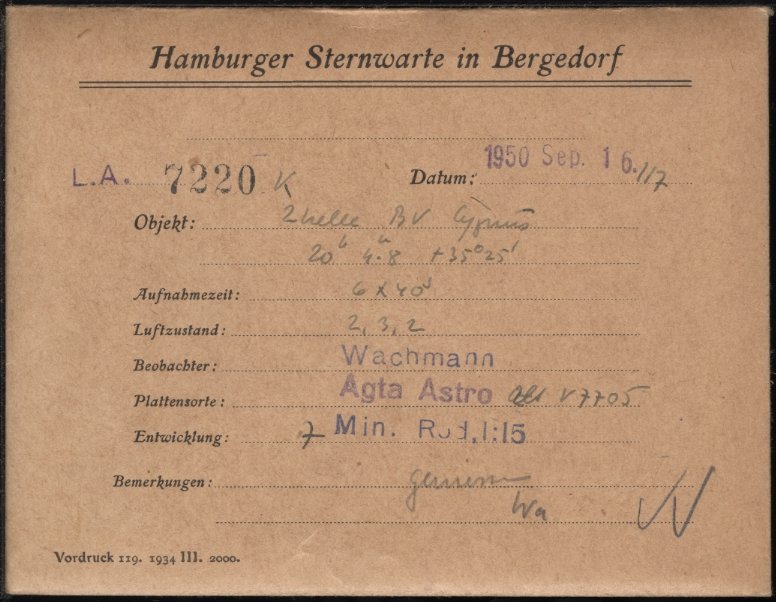 Hamburger Sternwarte in Bergedorf
L.A. 7220 K Datum: 1950 Sep. 16./17
Objekt: BV Cygnus
20h 4m.8 +35°25'
Aufnahmezeit: 6 x 40s
Luftzustand: 2, 3, 2
Beobachter: Wachmann
Plattensorte: Agfa Astro V7705
Entwicklung: 7 Min. Rod. 1:15
Bemerkungen:
Wa
Vordruck 119. 1934 III. 2000.